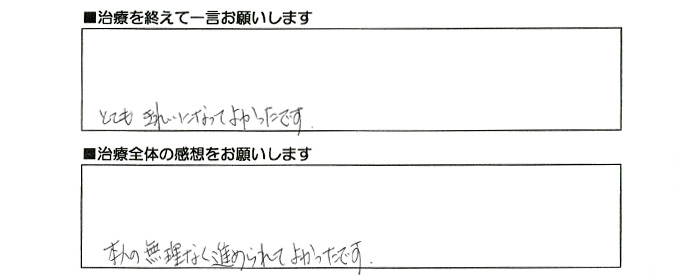 ■治療を終えて一言お願いします
とても きれいになってよかったです.
■治療全体の感想をお願いします
本人の無理なく進められてよかったです.